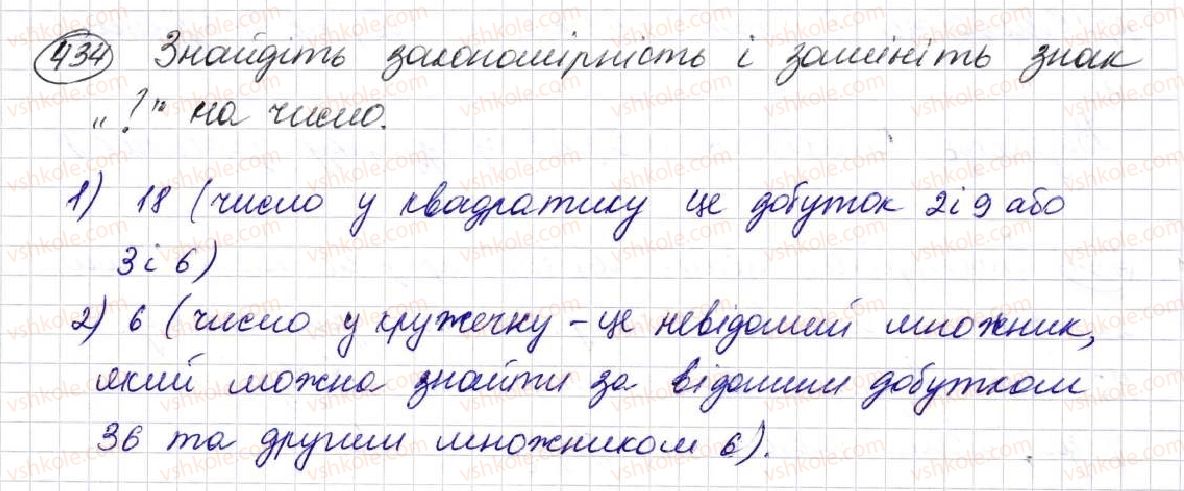 434 Знайдіть закономірність і замініть знак
„?" на число.
1) 18 (число у квадратику це добуток 2 і 9 або
3 і 6)
2) 6 (число у кружечку – це невідомий множник,
який можна знайти за відомим добутком
36 та другим множником 6).